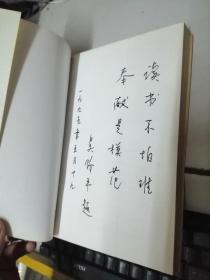 读书不怕难
奉献是模范
吴阶平题
一九九五年五月十九